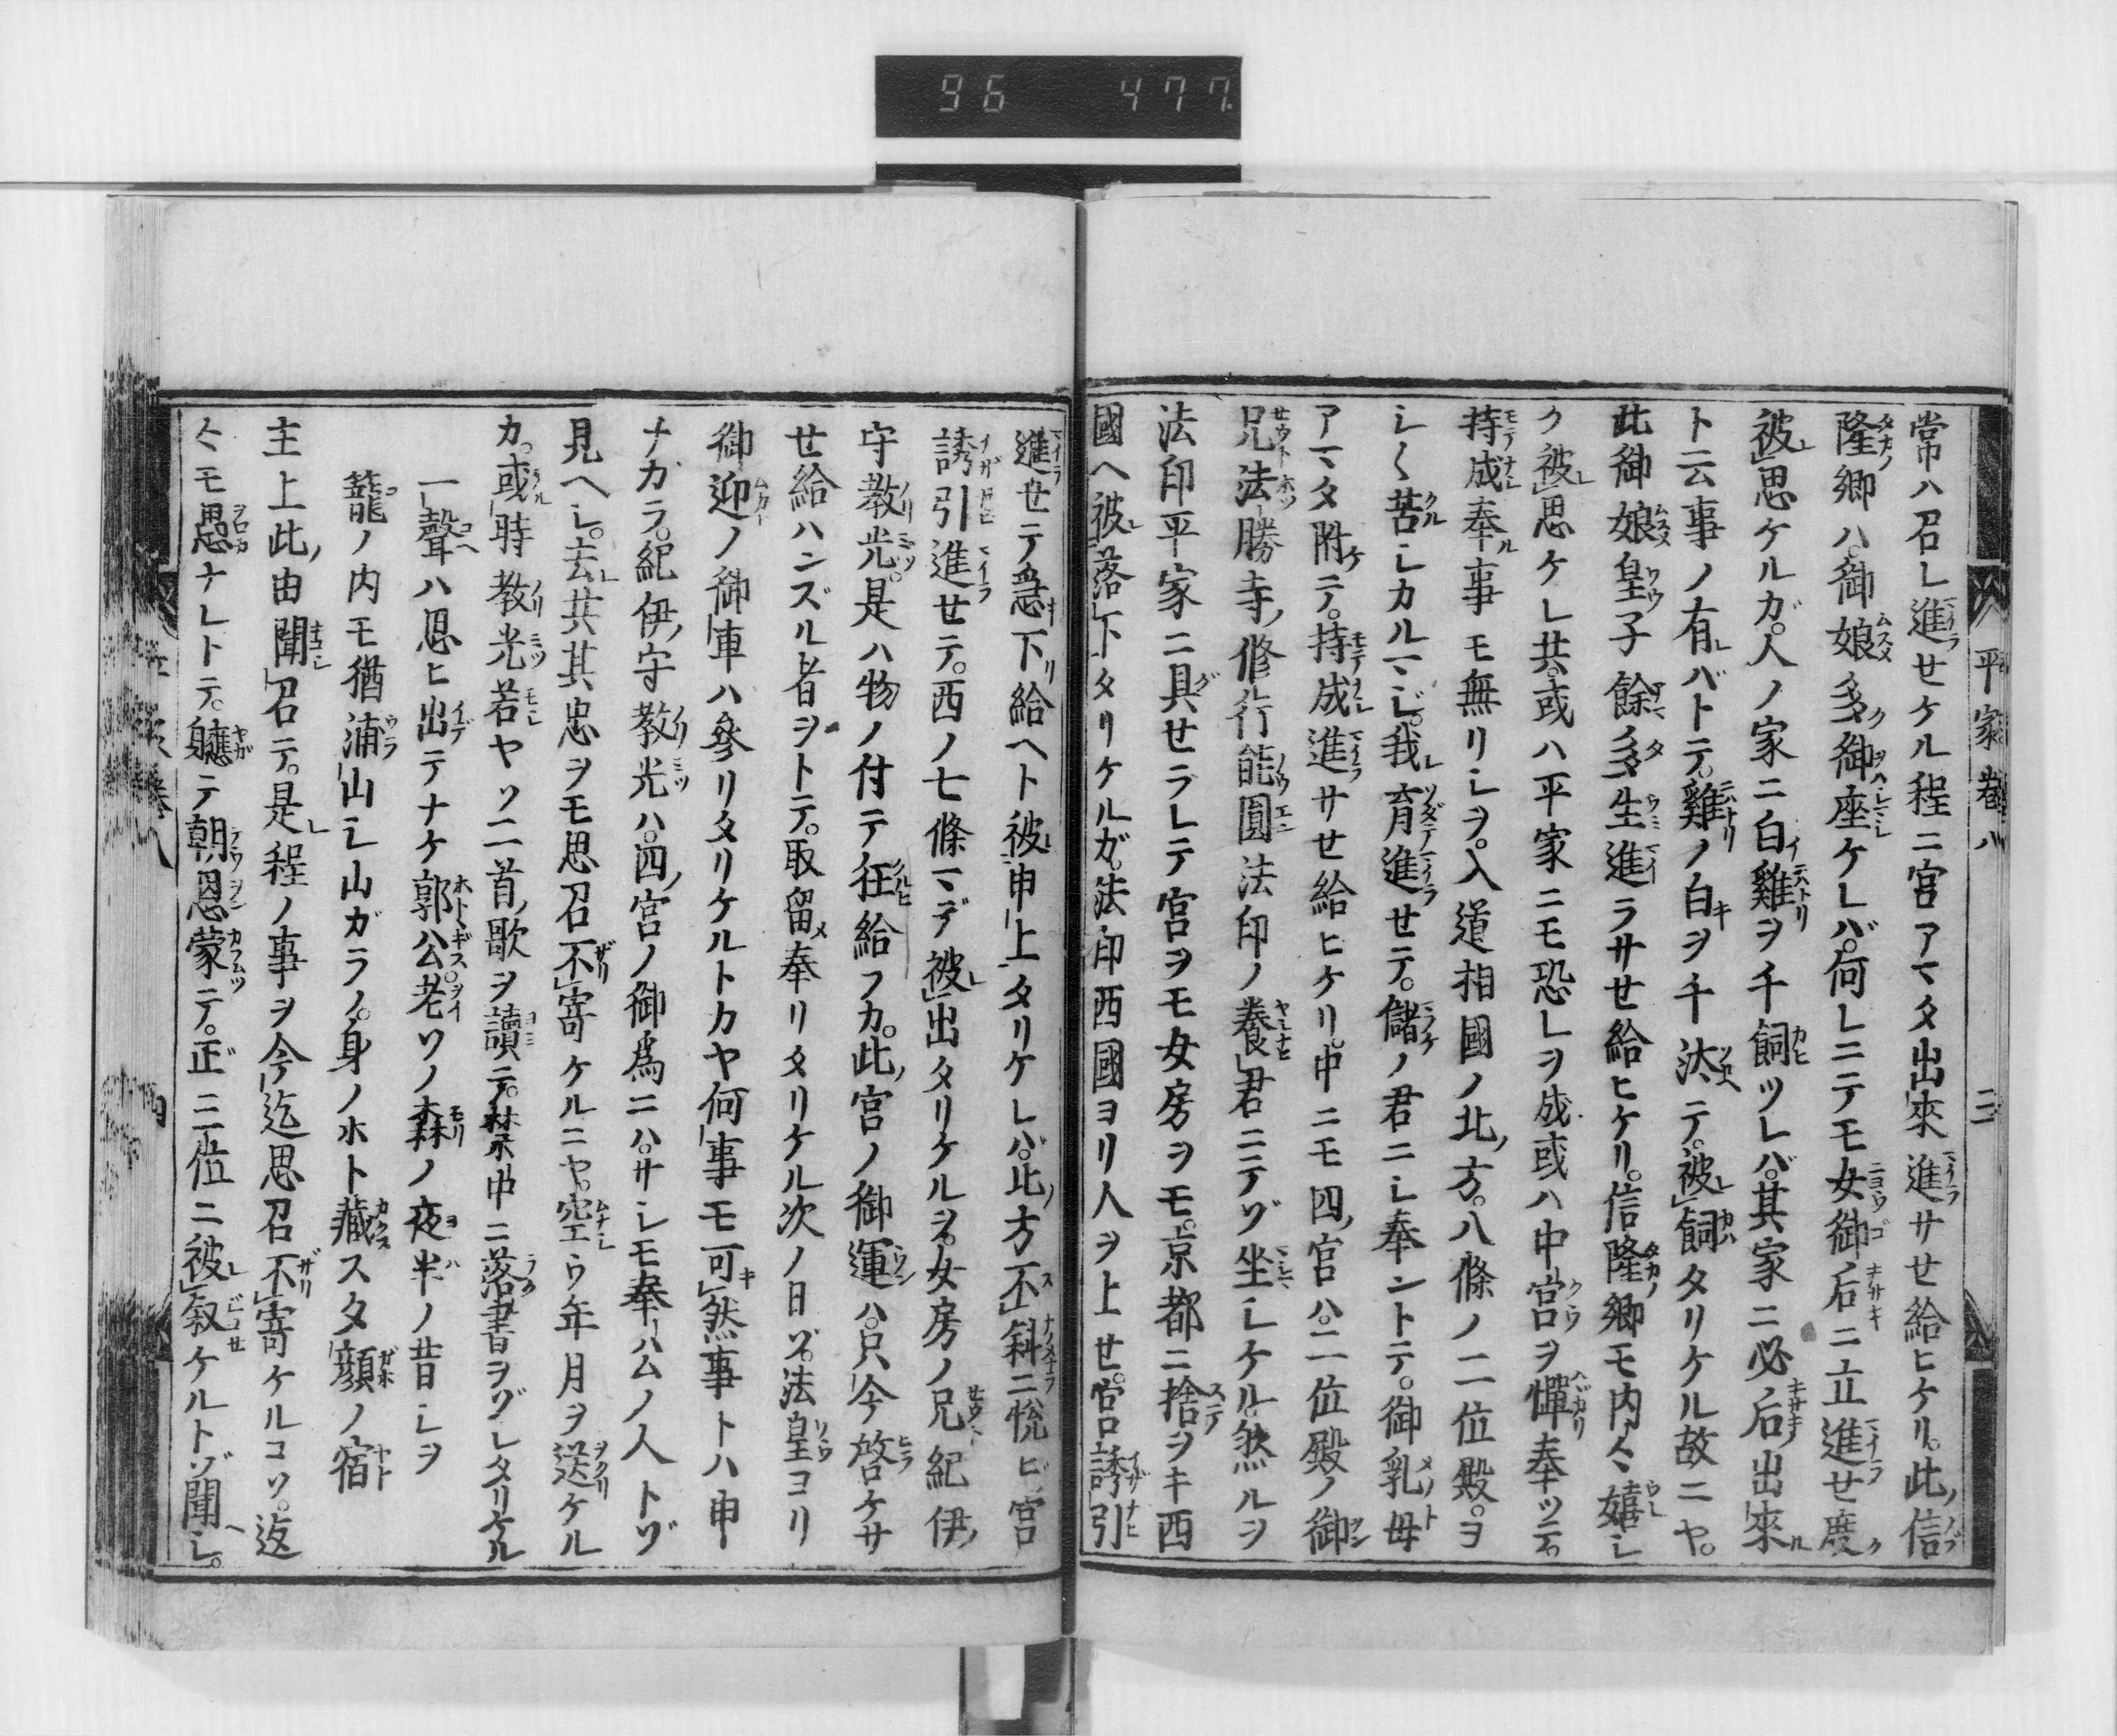 96 477
平家卷八 三
常ハ召レ進セケル程ニ宮アマタ出來進サせ給ヒケリ。此ノ信
隆卿ハ。御娘多ク御座ケレバ。何レニテモ女御后ニ立進せ度ク
被思ケルガ。人ノ家ニ白イ雞ヲ千飼ツレバ。其家ニ必ス后出來ル
ト云事ノ有レバトテ。雞ノ白キヲ千汰テ。被飼タリケル故ニヤ。
此御娘皇子餘多生進ラサせ給ヒケリ。信隆卿モ内々嬉シ
ク被思ケレ共。或ハ平家ニモ恐レヲ成或ハ中宮ヲ憚奉ツテ。
持成奉ル事モ無リシヲ。入道相國ノ北ノ方。八條ノ二位殿。ヨ
シ〱苦シカルマジ。我レ育進ラせテ。儲ノ君ニシ奉ントテ。御乳母
アマタ附ケテ。持成進サせ給ヒケリ。中ニモ四ノ宮ハ。二位殿ノ御
兄法勝寺ノ修行能圓法印ノ養君ニテゾ坐シケル。然ルヲ
法印平家ニ具せラレテ宮ヲモ女房ヲモ。京都ニ捨ヲキ西
國ヘ被落下タリケルガ。法印西國ヨリ人ヲ上せ。宮誘引
進せテ急キ下リ給ヘト被申上タリケレバ。北ノ方不斜ニ悅ビ宮
誘引進せテ。西ノ七條マデ被出タリケルヲ。女房ノ兄紀伊ノ
守教光。是ハ物ノ付テ狂給フカ。此ノ宮ノ御運ハ。只今啓ケサ
せ給ハンズル者ヲトテ。取留メ奉リタリケル次ノ日ゾ。法皇ヨリ
御迎ノ御車ハ參リタリケルトカヤ何事モ可キ然事トハ申
ナカラ。紀伊ノ守教光ハ。四ノ宮ノ御爲ニハ。サシモ奉ハムノ人トゾ
見ヘシ。去レ共其忠ヲモ思召不寄ケルニヤ。空シウ年月ヲ送ケル
カ。或時教光若ヤソ二首ノ歌ヲ讀テ。禁中ニ落書ヲゾシタリケル
一聲ハ思ヒ出テナケ郭公。老ソノ森ノ夜半ノ昔シヲ
籠ノ内モ猶浦山シ山ガラノ。身ノホト藏スタ顏ノ宿
主上此ノ由聞召テ。是レ程ノ事ヲ今迄思召不寄ケルコソ。返
々モ愚ナレトテ。軈テ朝恩蒙テ。正三位ニ被敍ケルトゾ聞ヘシ。
平家卷八 四